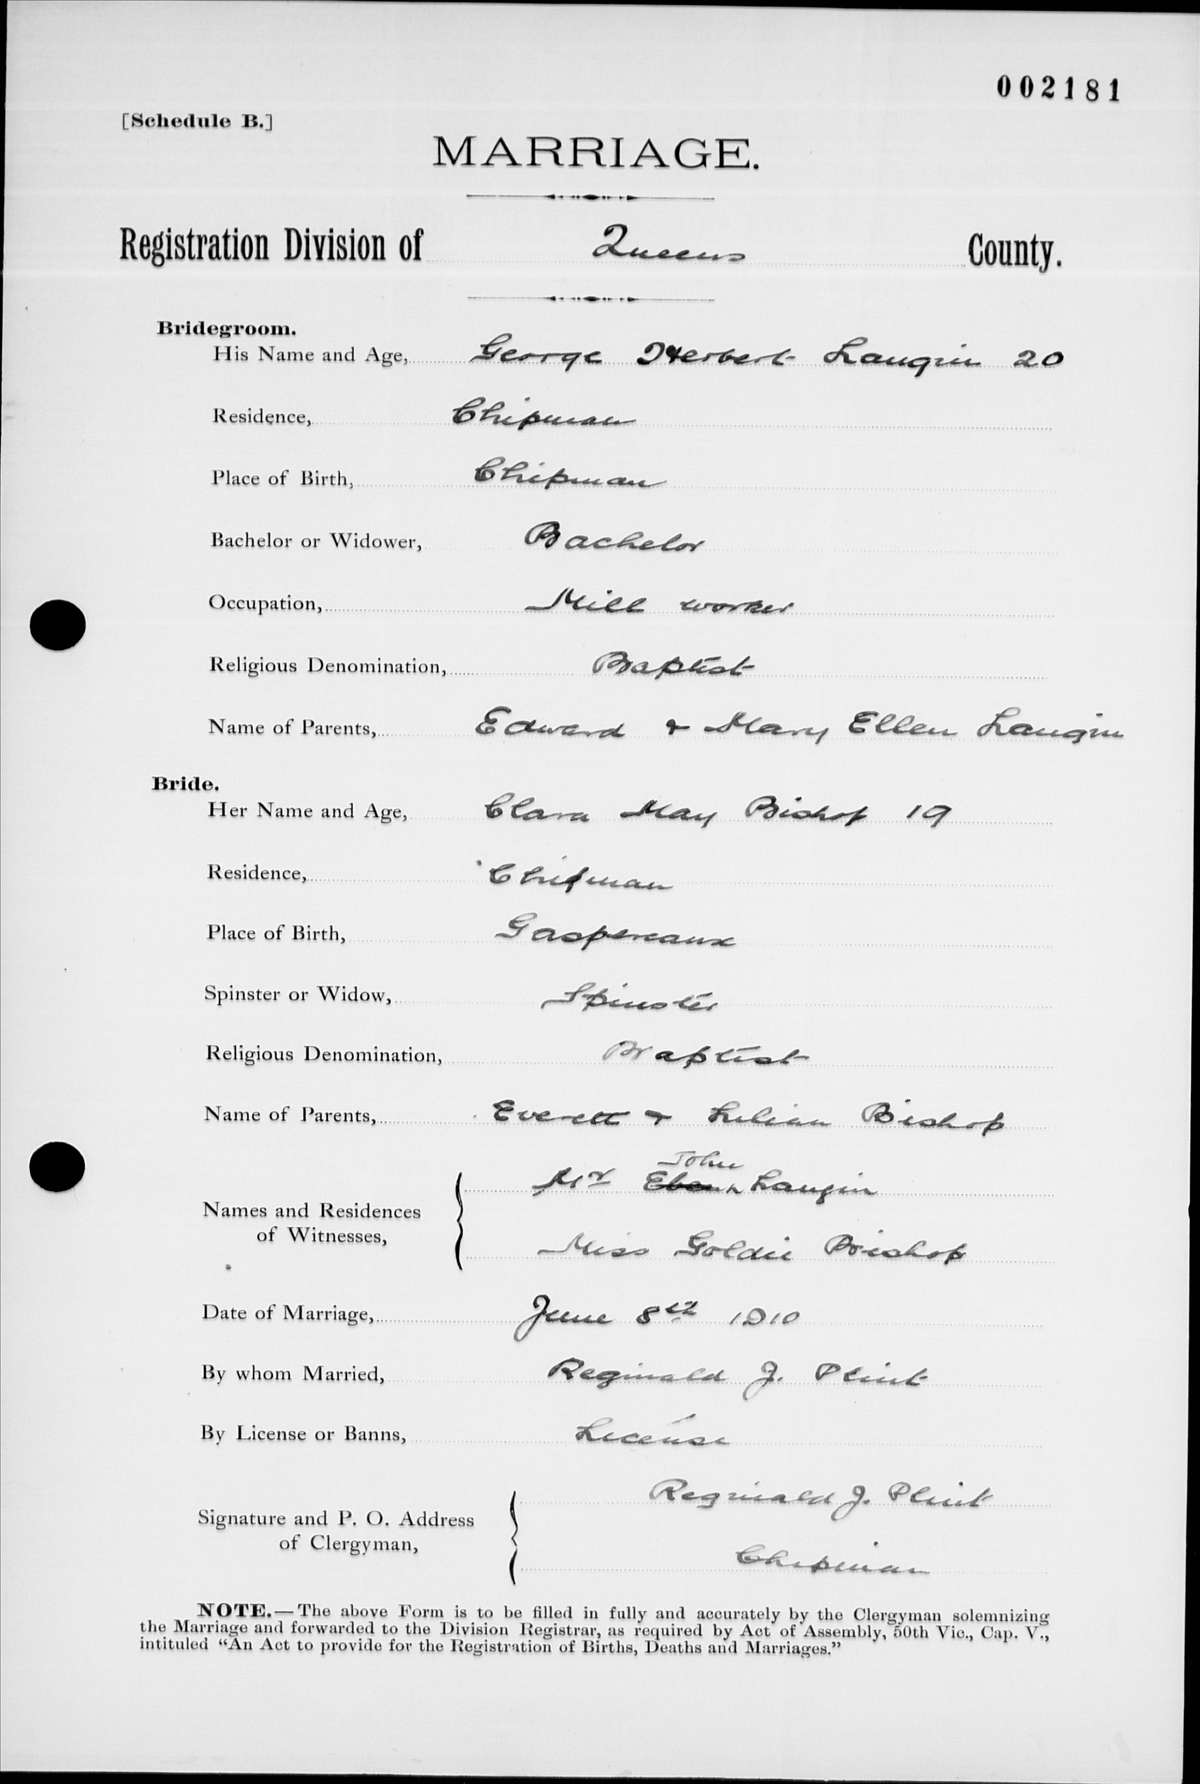 002181
[Schedule B.]
MARRIAGE.
Registration Division of Queens County.
Bridegroom.
His Name and Age, George Herbert Langin 20
Residence, Chipman
Place of Birth, Chipman
Bachelor or Widower, Bachelor
Occupation, Mill worker
Religious Denomination, Baptist
Name of Parents, Edward & Mary Ellen Langin
Bride.
Her Name and Age, Clara May Bishop 19
Residence, Chipman
Place of Birth, Gaspereaux
Spinster or Widow, Spinster
Religious Denomination, Baptist
Name of Parents, Everett & Lilian Bishop
John
Mr Langin
Names and Residences
of Witnesses,
Miss Goldie Bishop
Date of Marriage, June 8th 1910
By whom Married, Reginald J. Plint
By License or Banns, License
Reginald J. Plint
Signature and P. O. Address
of Clergyman,
Chipman
NOTE.—The above Form is to be filled in fully and accurately by the Clergyman solemnizing
the Marriage and forwarded to the Division Registrar, as required by Act of Assembly, 50th Vic., Cap. V.,
intituled “An Act to provide for the Registration of Births, Deaths and Marriages.”